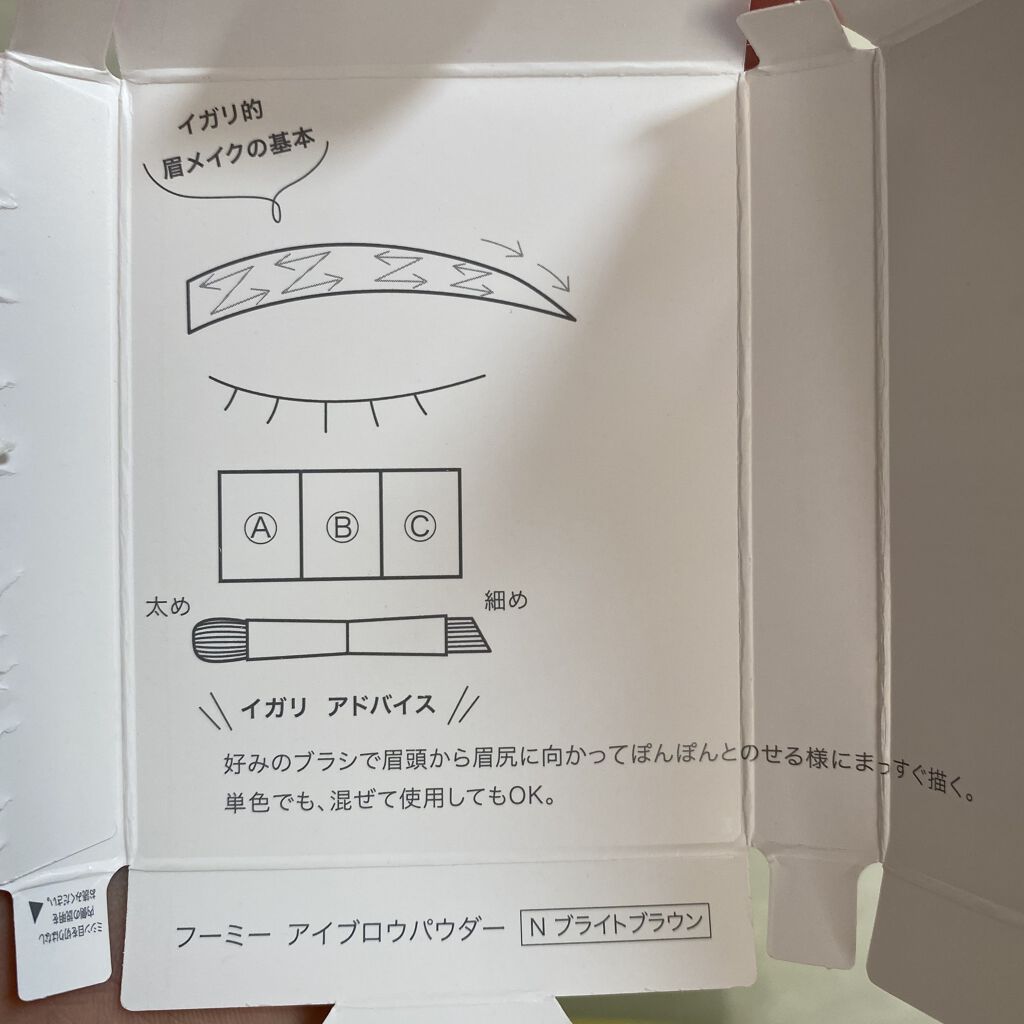 イガリ的
眉メイクの基本
Ⓐ Ⓑ Ⓒ
太め 細め
イガリ アドバイス
好みのブラシで眉頭から眉尻に向かってぽんぽんとのせる様にまっすぐ描く。
単色でも、混ぜて使用してもOK。
フーミー アイブロウパウダー N ブライトブラウン
ミシン目を切りはなし
内側の説明を
お読みください。